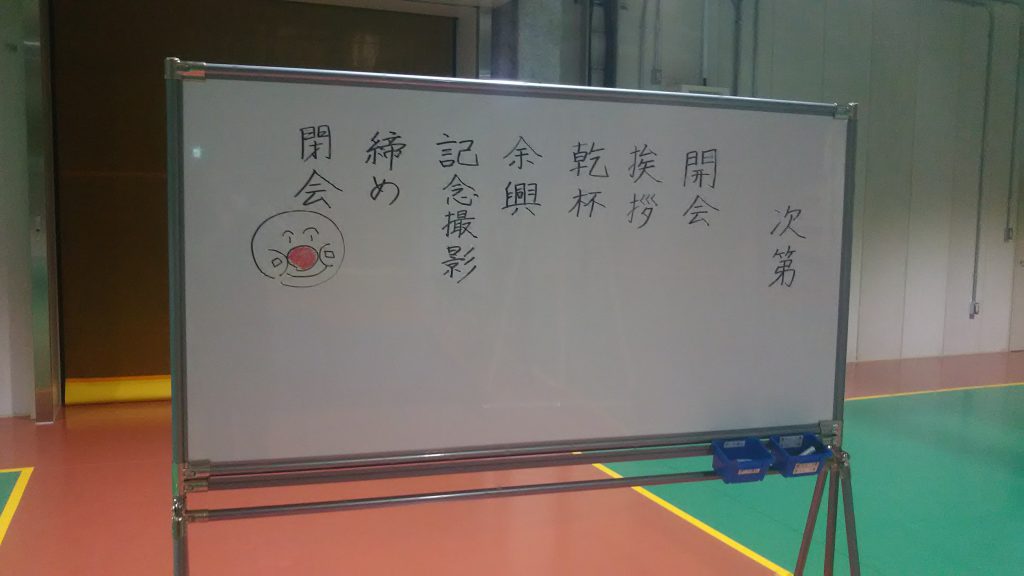 次第
開会
挨拶
乾杯
余興
記念撮影
締め
閉会